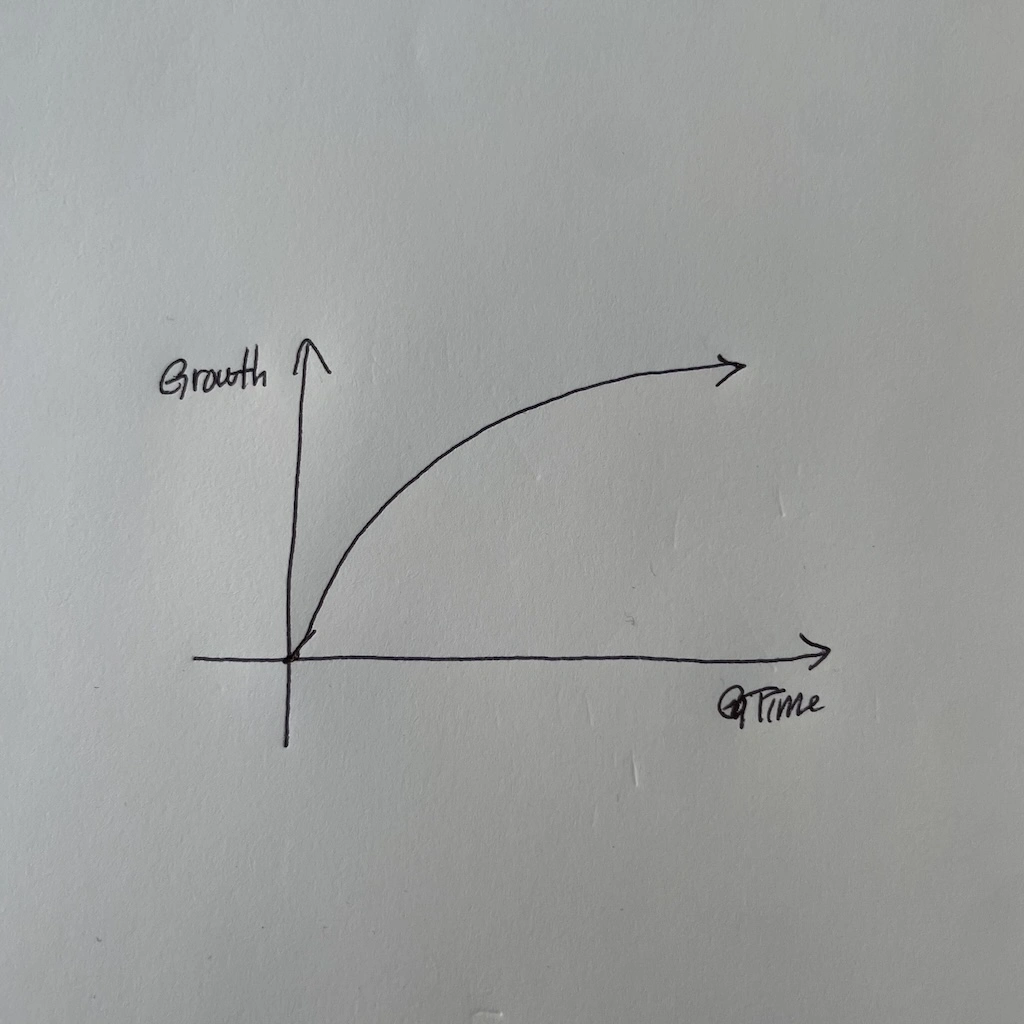 Growth
Time